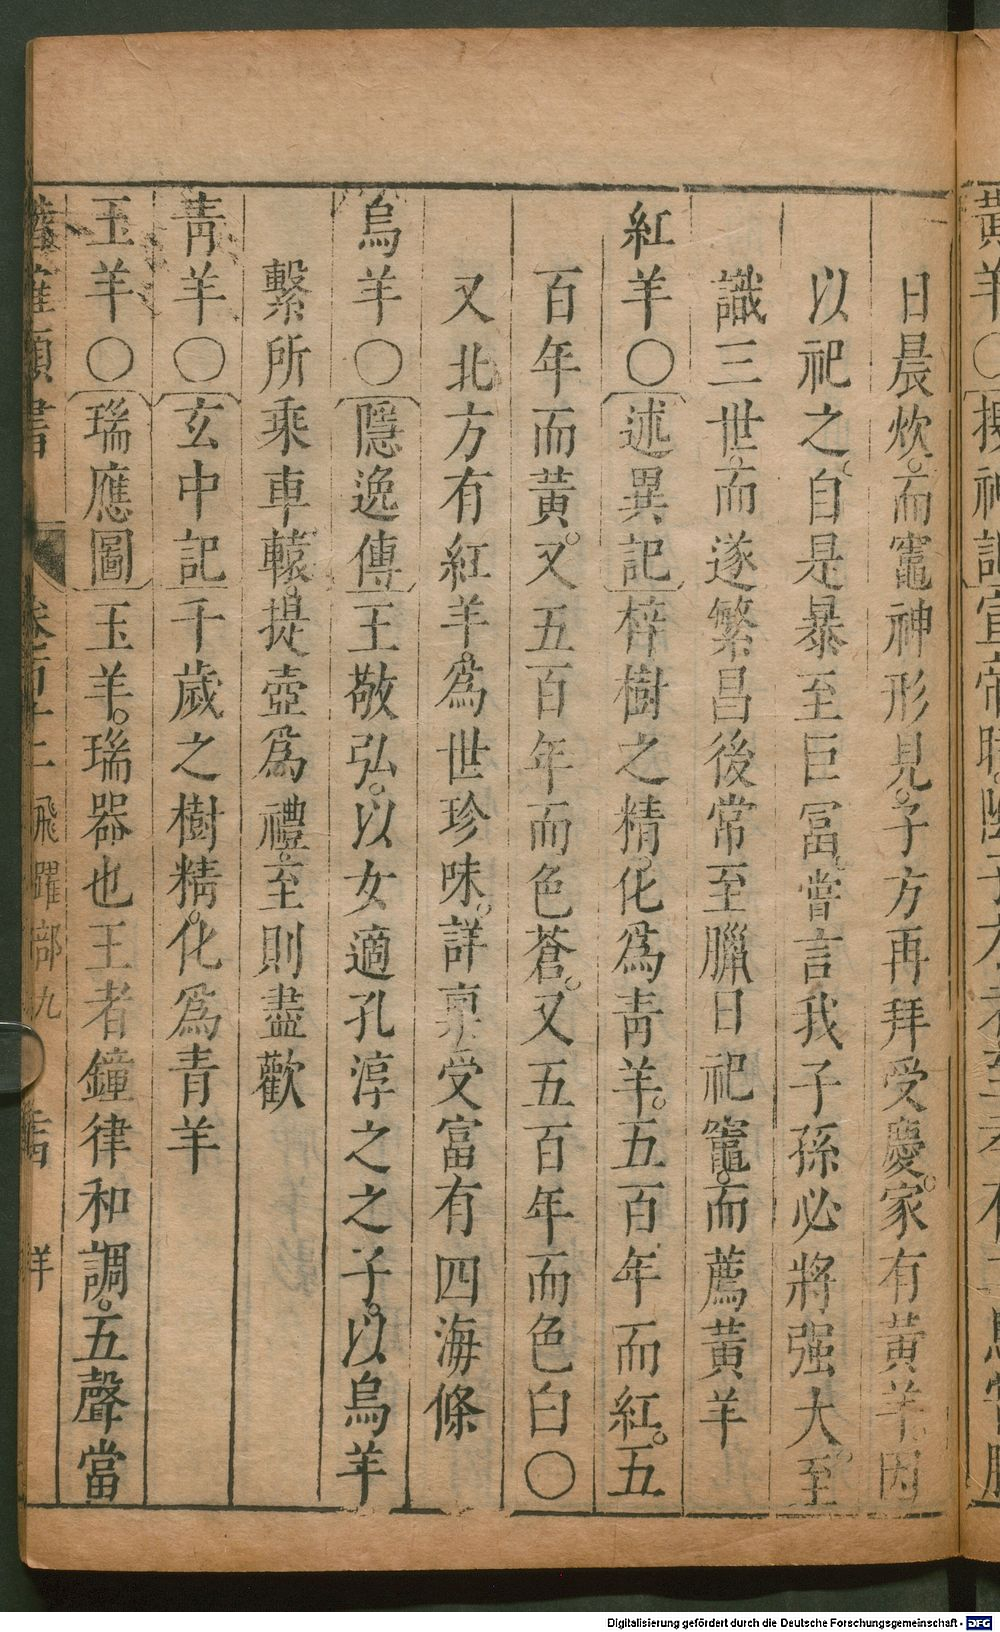 日晨炊。而竈神形見。子方再拜受慶。家有黃羊。因
以祀之。自是暴至巨冨。嘗言我子孫必將强大。至
識三世。而遂繁昌後常至臘日祀竈。而薦黃羊
紅羊○〔述異記〕梓樹之精。化爲靑羊。五百年而紅。五
百年而黃。又五百年而色蒼。又五百年而色白○
又北方有紅羊。爲世珍味。詳稟受富有四海條
烏羊○〔隱逸傳〕王敬弘。以女適孔淳之之子。以烏羊
繫所乘車轅。提壺爲禮。至則盡歡
靑羊○〔玄中記〕千歲之樹精。化爲青羊
玉羊○〔瑞應圖〕玉羊。瑞器也王者鐘律和調。五聲當
飛躍部九 羊
Digitalisierung gefördert durch die Deutsche Forschungsgemeinschaft - DFG